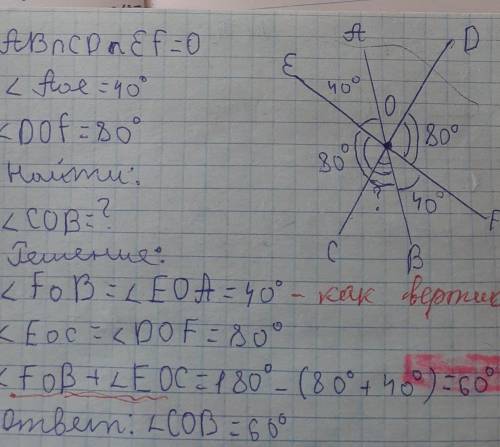 AB∩CD∩EF=O
∠AOE=40°
∠DOF=80°
Найти:
∠COB=?
Решение:
∠FOB=∠EOA=40° - как вертик
∠EOC=∠DOF=80°
∠FOB+∠EOC=180°-(80°+40°)=60°
Ответ: ∠COB=60°
A
D
E
40°
O
80°
80°
?
40°
F
C
B